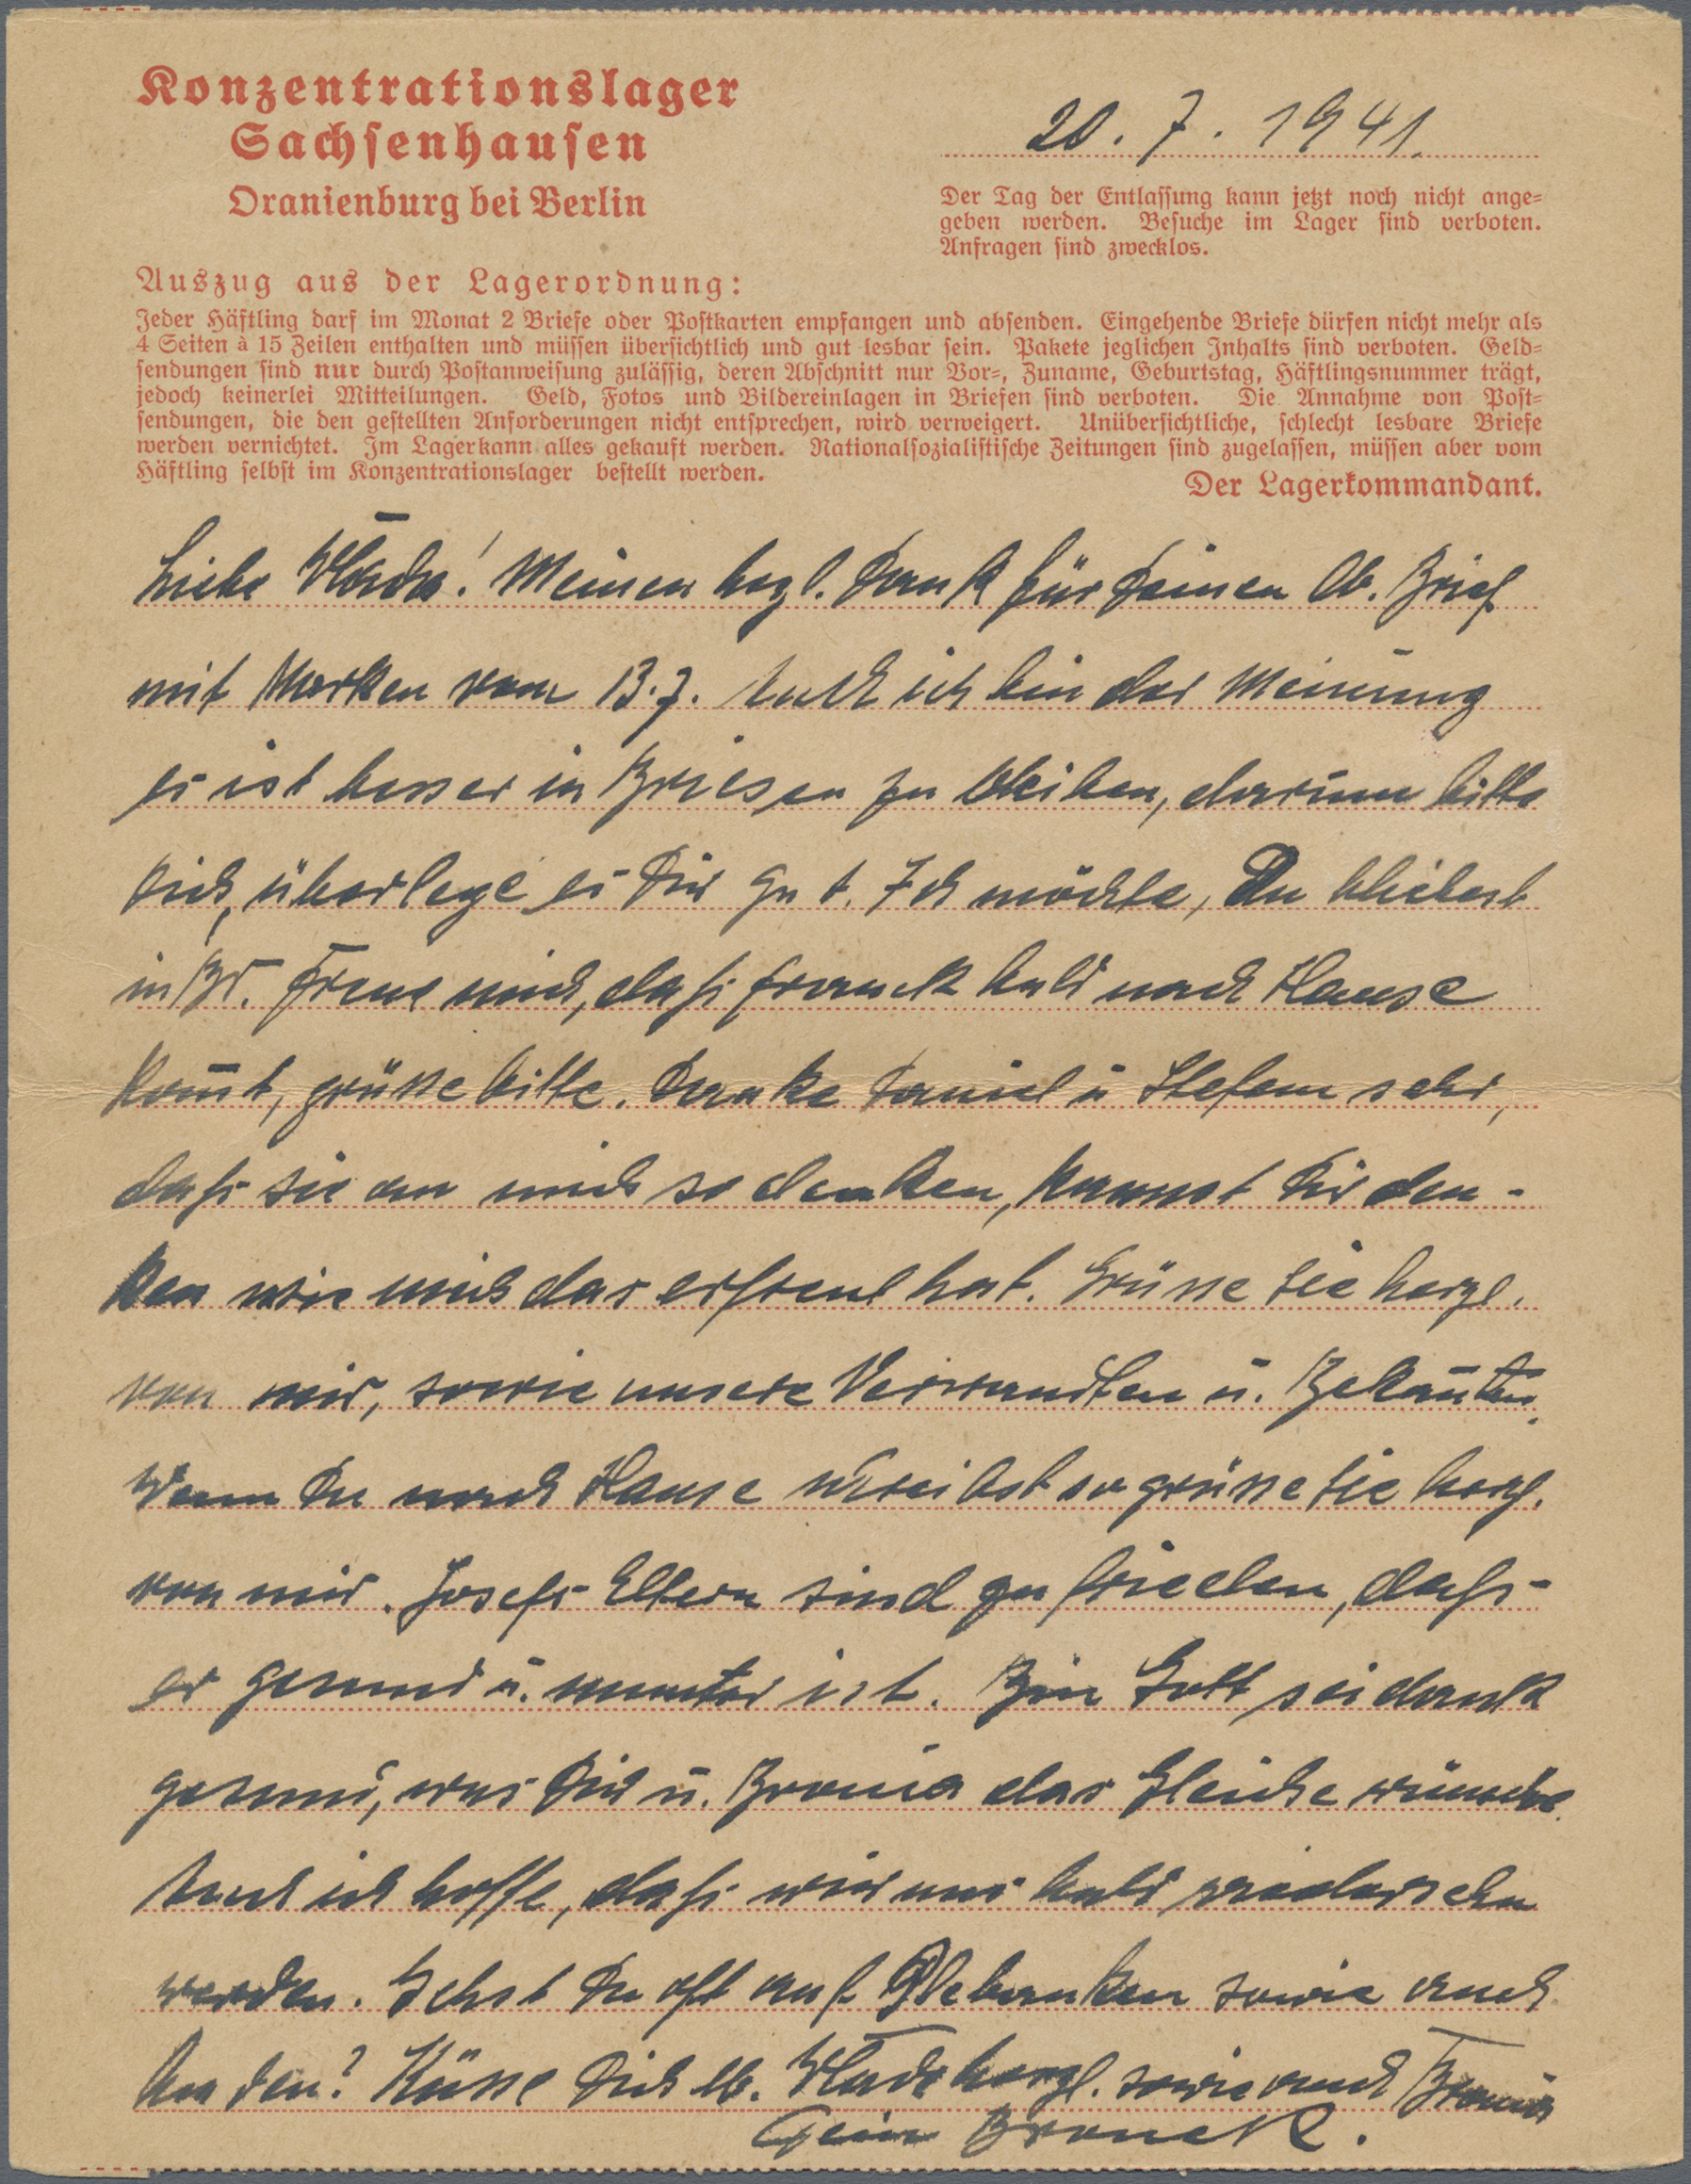 Konzentrationslager
Sachsenhausen
Oranienburg bei Berlin
20. 7. 1941.
Der Tag der Entlassung kann jetzt noch nicht ange-
geben werden. Besuche im Lager sind verboten.
Anfragen sind zwecklos.
Auszug aus der Lagerordnung:
Jeder Häftling darf im Monat 2 Briefe oder Postkarten empfangen und absenden. Eingehende Briefe dürfen nicht mehr als
4 Seiten à 15 Zeilen enthalten und müssen übersichtlich und gut lesbar sein. Pakete jeglichen Inhalts sind verboten. Geld-
sendungen sind nur durch Postanweisung zulässig, deren Abschnitt nur Vor-, Zuname, Geburtstag, Häftlingsnummer trägt,
jedoch keinerlei Mitteilungen. Geld, Fotos und Bildereinlagen in Briefen sind verboten. Die Annahme von Post-
sendungen, die den gestellten Anforderungen nicht entsprechen, wird verweigert. Unübersichtliche, schlecht lesbare Briefe
werden vernichtet. Im Lager kann alles gekauft werden. Nationalsozialistische Zeitungen sind zugelassen, müssen aber vom
Häftling selbst im Konzentrationslager bestellt werden.
Der Lagerkommandant.
Liebe Wlada! Meinen hrzl. Dank für Deinen lb. Brief
mit Marken vom 13.7. Auch ich bin der Meinung
es ist besser in Briesen zu bleiben, darum bitte
Dich, überlege es Dir gut. Ich möchte, Du bliebest
in Br. Freue mich, daß Franek bald nach Hause
kom̄t, grüsse bitte. Danke Daniel u Stefan sehr,
daß sie an mich so denken, kannst Dir den-
ken wie mich das erfreut hat. Grüsse sie herzl.
von mir, sowie unsere Verwandten u. Bekan̄ten.
Wenn Du nach Hause schreibst so grüsse sie herzl.
von mir. Josefs Eltern sind zufrieden, daß
er gesund u. munter ist. Bin Gott sei dank
gesund, was Dir u. Bronia das Gleiche wünsche.
Auch ich hoffe, daß wir uns bald wiedersehn
werden. Gehst Du oft auf sowie auch
baden? Küsse Dich lb. Wlada herzl. sowie auch Bronia
Dein Bronek.